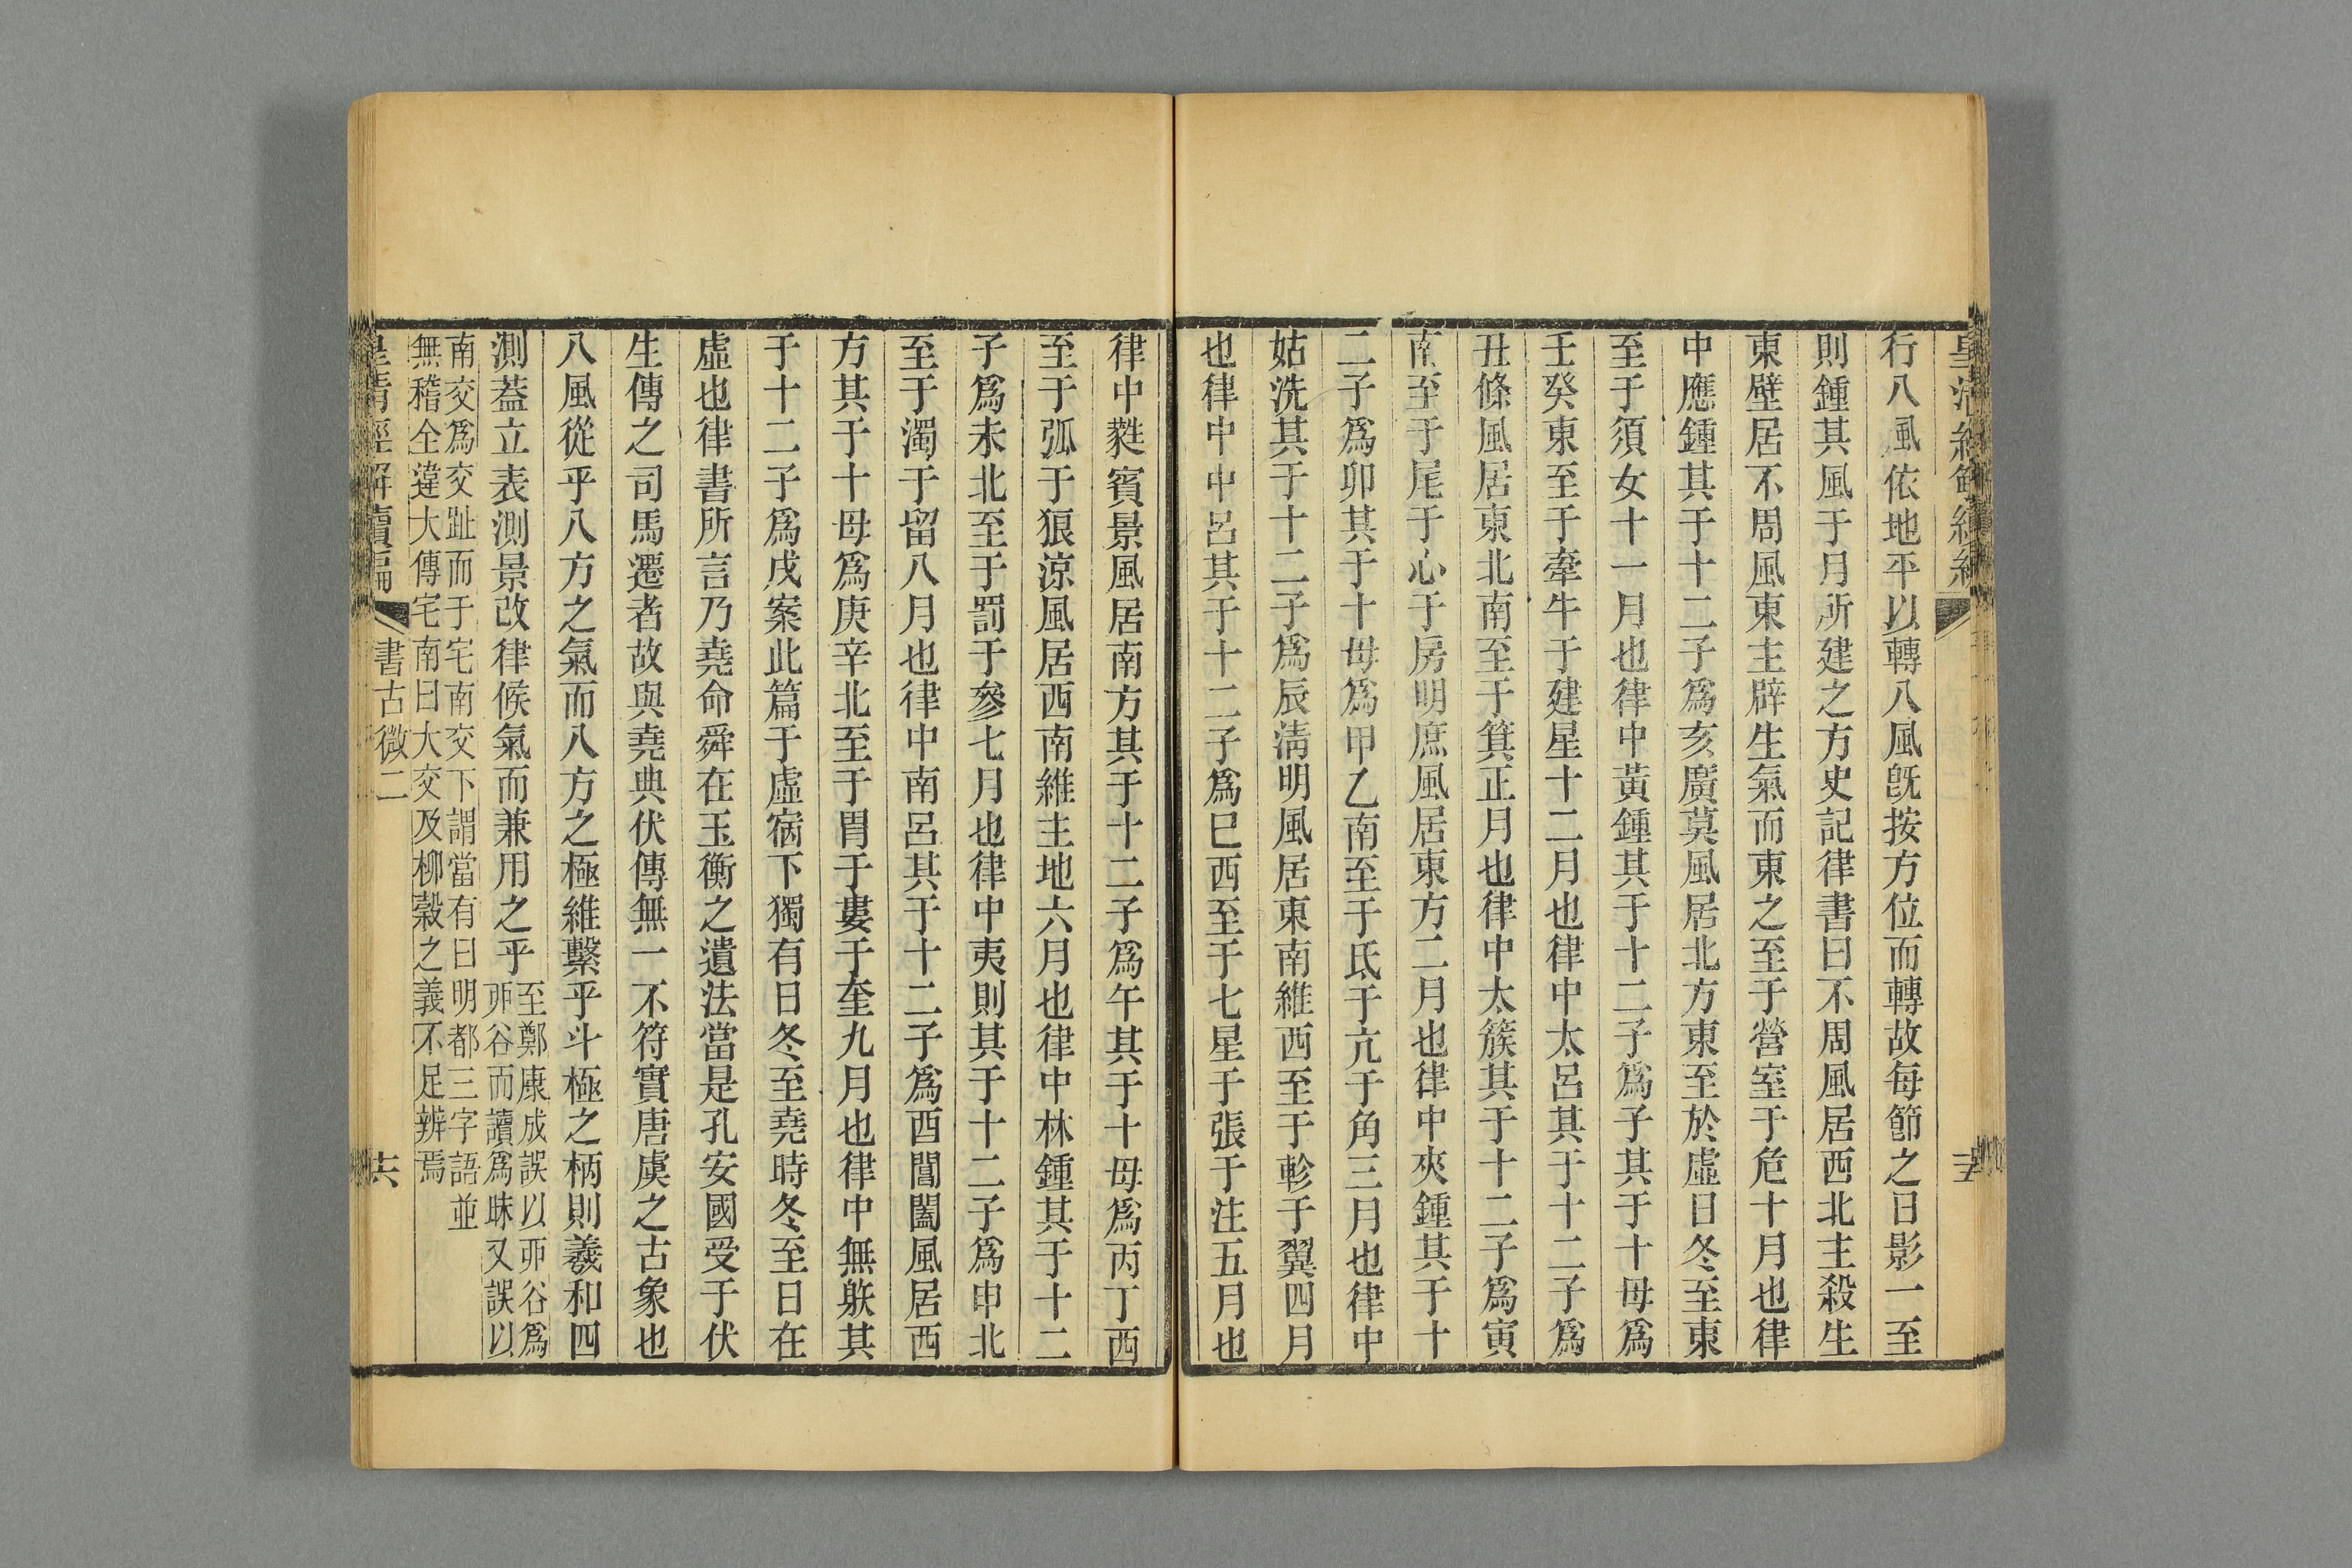 行八風依地平以轉八風旣按方位而轉故每節之日影一至
則鍾其風于月所建之方史記律書曰不周風居西北主殺生
東壁居不周風東主辟生氣而東之至于營室于危十月也律
中應鍾其于十二子爲亥廣莫風居北方東至於虛日冬至東
至于須女十一月也律中黃鍾其于十二子爲子其于十母爲
壬癸東至于牽牛于建星十二月也律中太呂其于十二子爲
丑條風居東北南至于箕正月也律中太簇其于十二子爲寅
南至于尾于心于房明庶風居東方二月也律中夾鍾其于十
二子爲卯其于十母爲甲乙南至于氐于亢于角三月也律中
姑洗其于十二子爲辰淸明風居東南維西至于軫于翼四月
也律中中呂其于十二子爲巳西至于七星于張于注五月也
律中蕤賓景風居南方其于十二子爲午其于十母爲丙丁西
至于弧于狼涼風居西南維主地六月也律中林鍾其于十二
子爲未北至于罰于參七月也律中夷則其于十二子爲申北
至于濁于留八月也律中南呂其于十二子爲酉閶闔風居西
方其于十母爲庚辛北至于胃于婁于奎九月也律中無射其
于十二子爲戌案此篇于虛宿下獨有日冬至堯時冬至日在
虛也律書所言乃堯命舜在玉衡之遺法當是孔安國受于伏
生傳之司馬遷者故與堯典伏傳無一不符實唐虞之古象也
八風從乎八方之氣而八方之極維繫乎斗極之柄則羲和四
測蓋立表測景改律候氣而兼用之乎
至鄭康成誤以丣谷爲
丣谷而讀爲昧又誤以
南交爲交趾而于宅南交下謂當有曰明都三字語並
無稽全違大傳宅南曰大交及柳穀之義不足辨焉
皇淸經解續編
書古微二
六